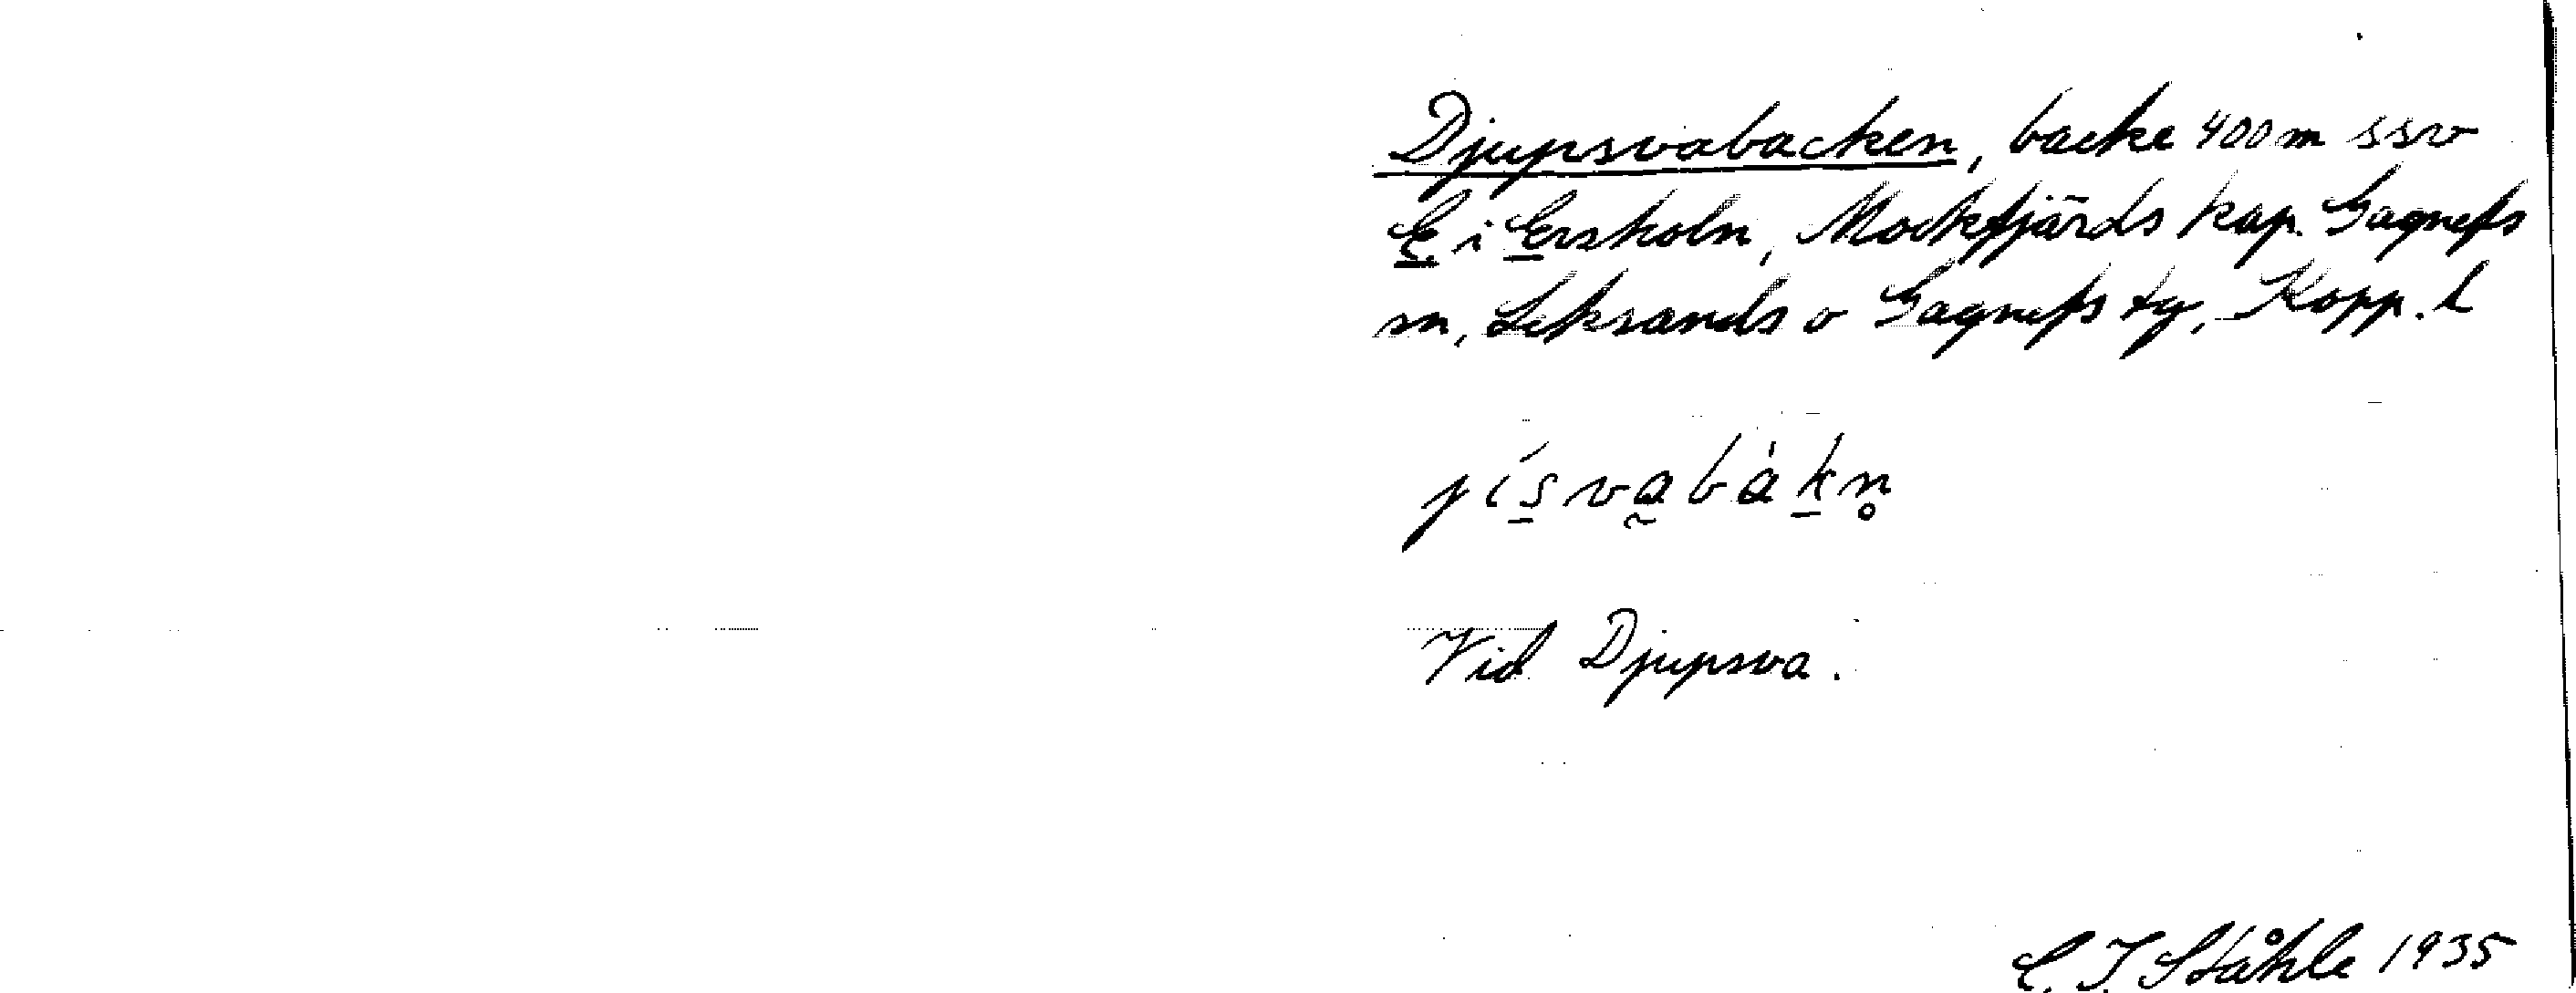 Djupsvabacken, backe 400 m ssv
E i Ersholn, Mockfjärds kap. Gagnefs
sn, Leksands o Gagnefs tg, Kopp. l
jísvabàkn̥
Vid Djupsva.
C. I. Ståhle 1935